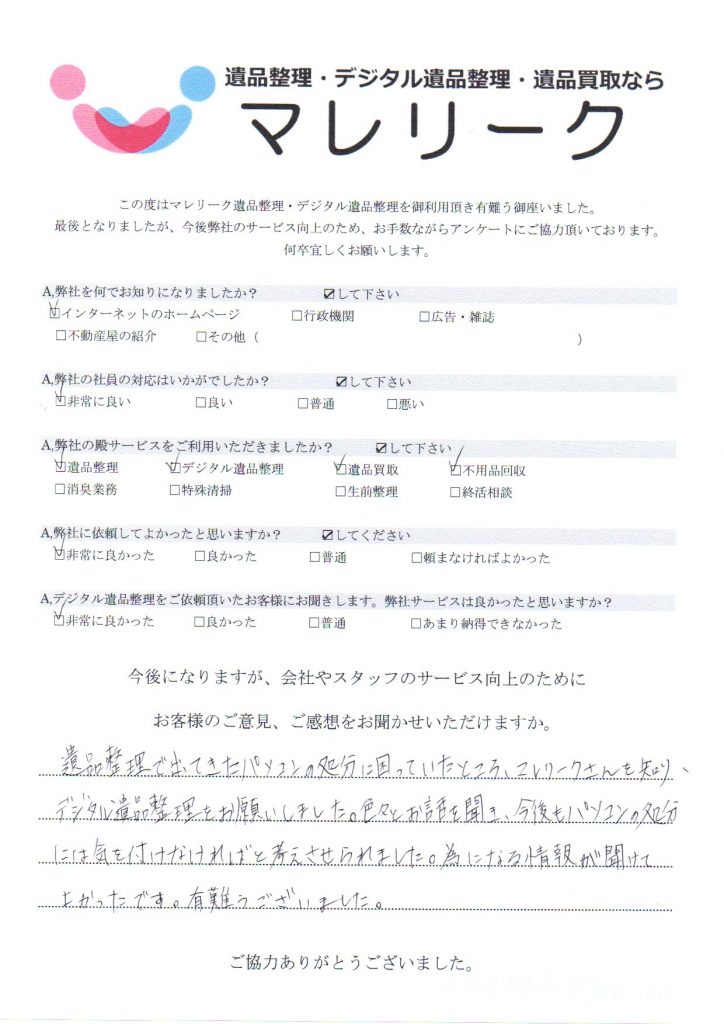 遺品整理・デジタル遺品整理・遺品買取なら
マレリーク
この度はマレリーク遺品整理・デジタル遺品整理を御利用頂き有難う御座いました。
最後となりましたが、今後弊社のサービス向上のため、お手数ながらアンケートにご協力頂いております。
何卒宜しくお願いします。
A,弊社を何でお知りになりましたか？ ☑して下さい
☑インターネットのホームページ □行政機関 □広告・雑誌
□不動産屋の紹介 □その他（ ）
A,弊社の社員の対応はいかがでしたか？ ☑して下さい
☑非常に良い □良い □普通 □悪い
A,弊社の殿サービスをご利用いただきましたか？ ☑して下さい
☑遺品整理 ☑デジタル遺品整理 ☑遺品買取 ☑不用品回収
□消臭業務 □特殊清掃 □生前整理 □終活相談
A,弊社に依頼してよかったと思いますか？ ☑してください
☑非常に良かった □良かった □普通 □頼まなければよかった
A,デジタル遺品整理をご依頼頂いたお客様にお聞きします。弊社サービスは良かったと思いますか？
☑非常に良かった □良かった □普通 □あまり納得できなかった
今後になりますが、会社やスタッフのサービス向上のために
お客様のご意見、ご感想をお聞かせいただけますか。
遺品整理で出てきたパソコンの処分に困っていたところ、マレリークさんを知り、
デジタル遺品整理をお願いしました。色々とお話を聞き、今後もパソコンの処分
には気を付けなければと考えさせられました。為になる情報が聞けて
よかったです。有難うございました。
ご協力ありがとうございました。